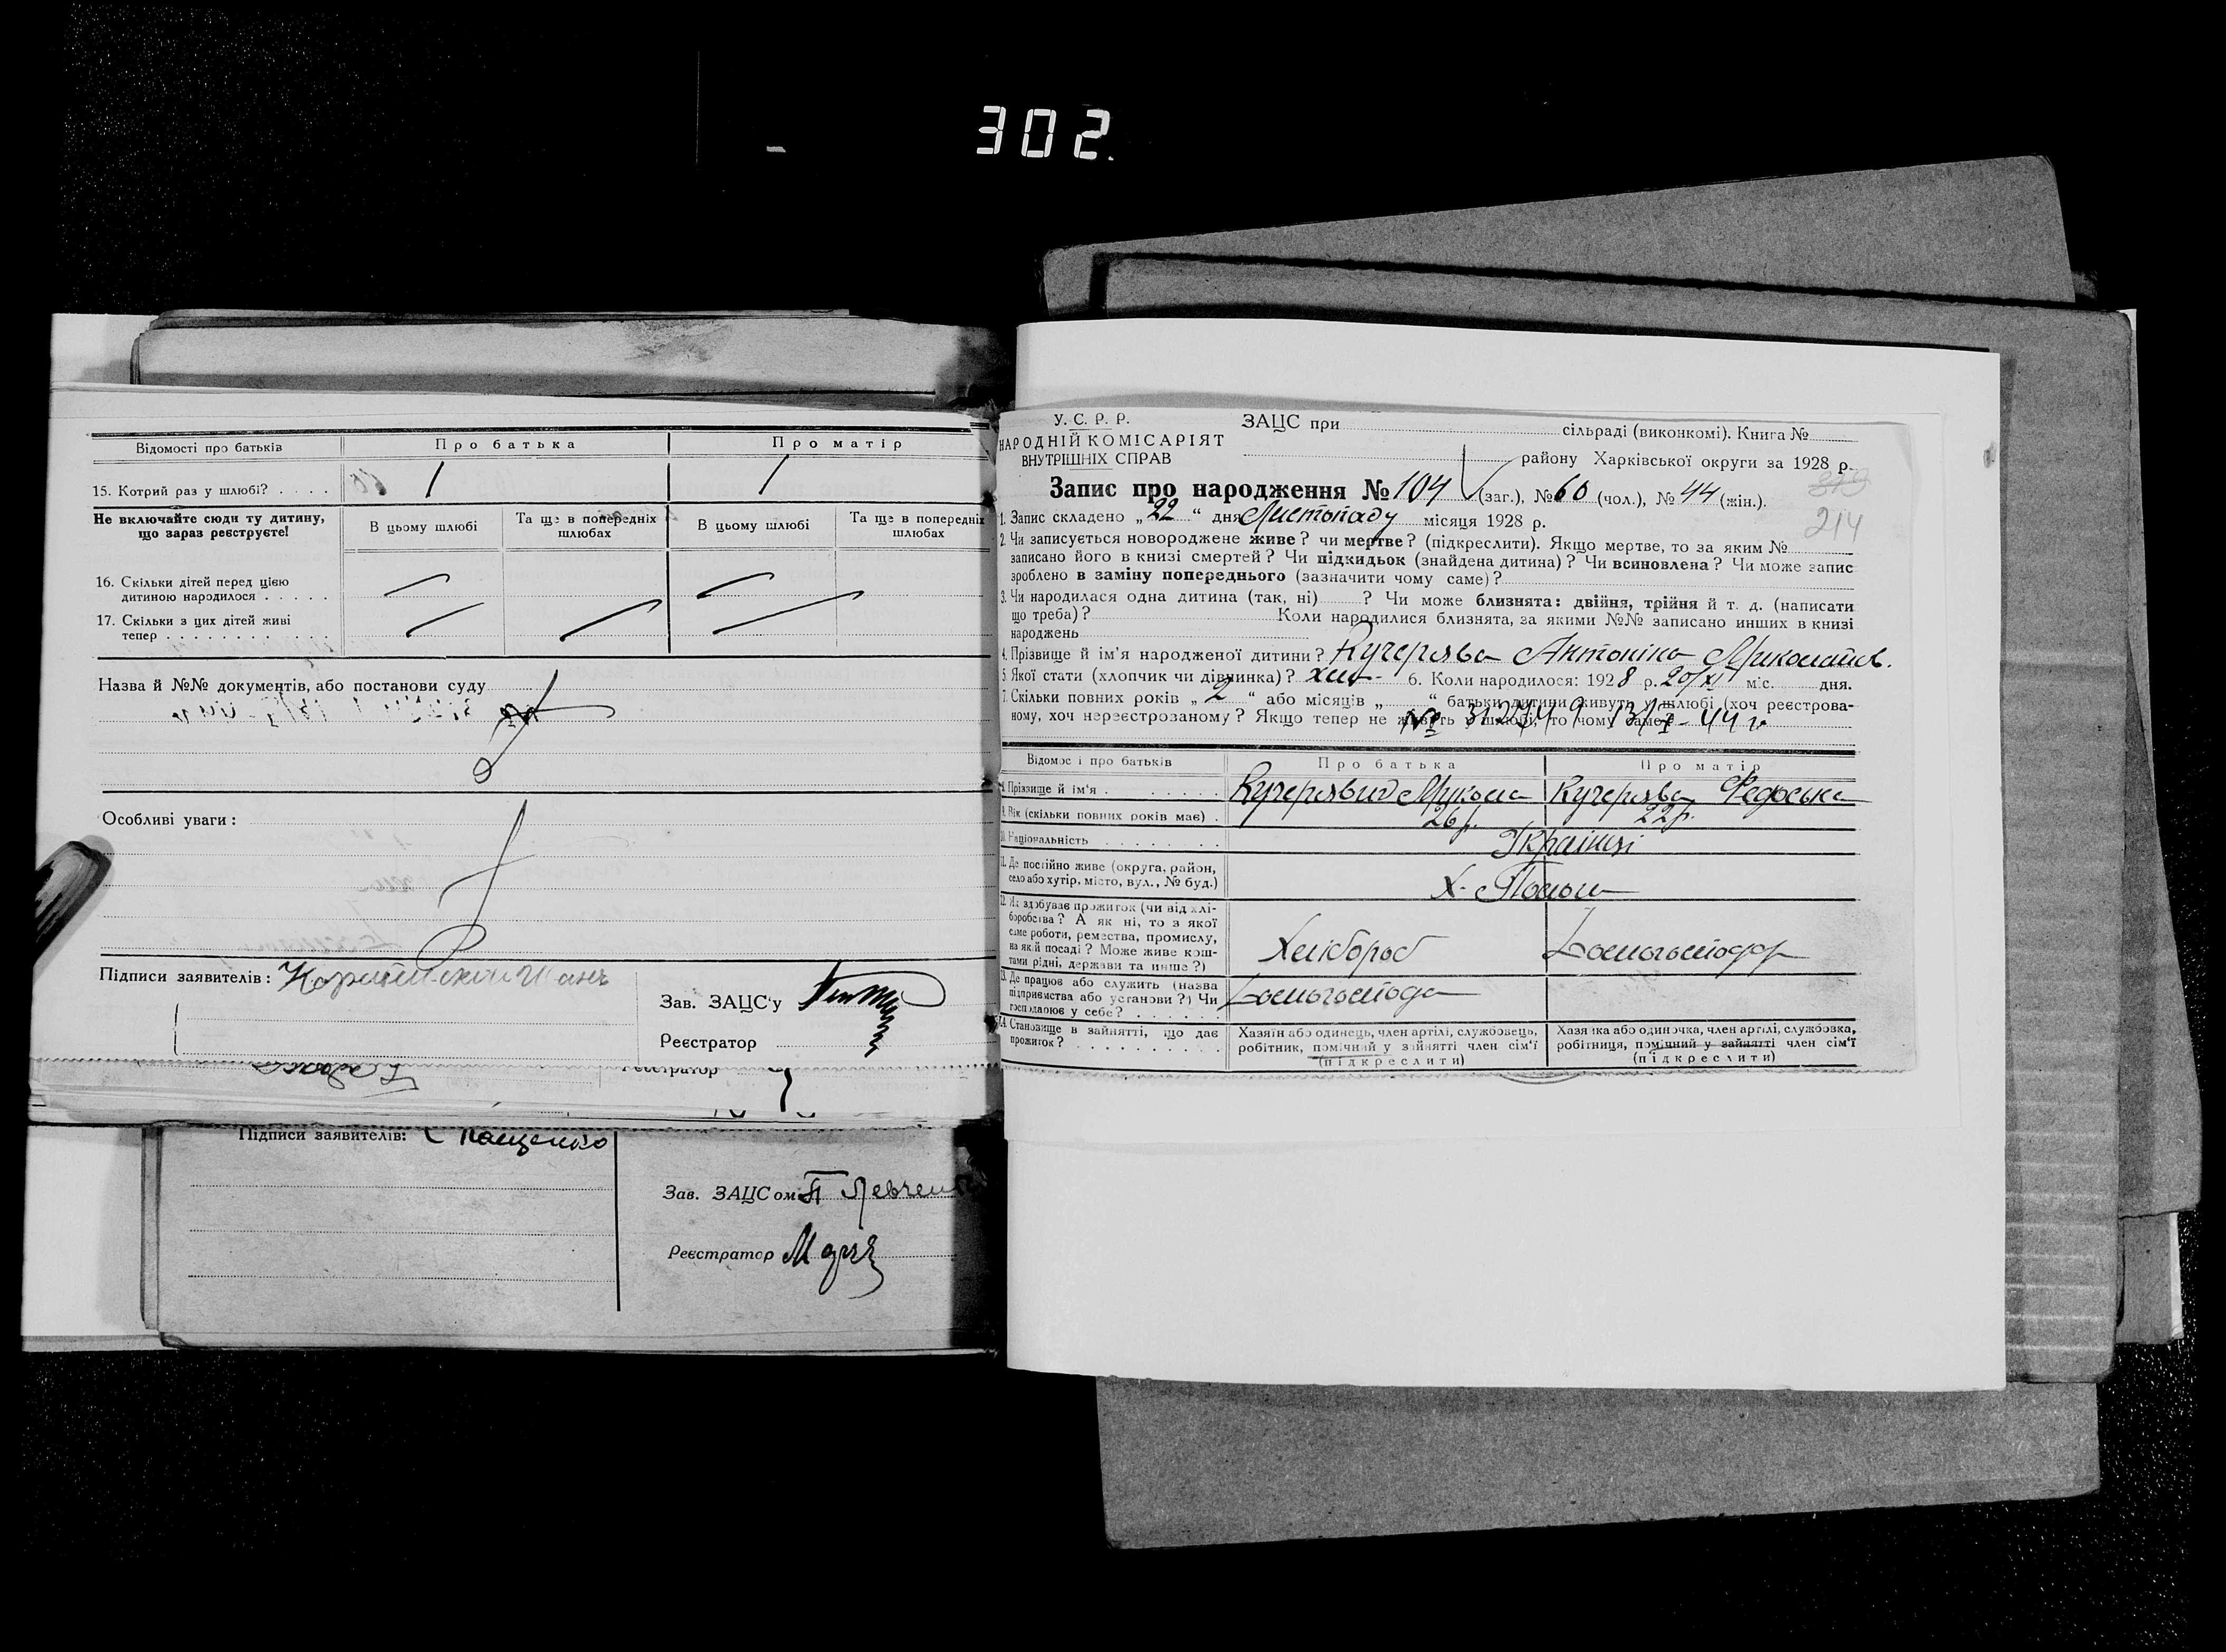 302.
Відомості про батьків
Про батька
Про матір
15. Котрий раз у шлюбі? . . . . 1 1
Не включайте сюди ту дитину, що зараз реєструєте!
В цьому шлюбі
Та ще в попередніх шлюбах
В цьому шлюбі
Та ще в попередніх шлюбах
16. Скільки дітей перед цією
дитиною народилося . . . . .
17. Скільки з цих дітей живі
тепер . . . . . . . . . . . .
Назва й №№ документів, або постанови суду
Особливі уваги:
Підписи заявителів:
Зав. ЗАЦС'у
Реєстратор
Реєстратор
Підписи заявителів: Кащенко
Зав. ЗАЦСом П Левчен
Реєстратор
У. С. Р. Р.
НАРОДНІЙ КОМІСАРІЯТ
ВНУТРІШНІХ СПРАВ
ЗАЦС при сільраді (виконкомі). Книга №
району Харківської округи за 1928 р.
Запис про народження № 104 (заг.), № 60 (чол.), № 44 (жін.).
379
214
1. Запис складено „22" дня Листопаду місяця 1928 р.
2. Чи записується новороджене живе? чи мертве? (підкреслити). Якщо мертве, то за яким №
записано його в книзі смертей? Чи підкидьок (знайдена дитина)? Чи всиновлена? Чи може запис
зроблено в заміну попереднього (зазначити чому саме)?
3. Чи народилася одна дитина (так, ні) ? Чи може близнята: двійня, трійня й т. д. (написати
що треба)? Коли народилися близнята, за якими №№ записано инших в книзі
народжень
4. Прізвище й ім'я народженої дитини? Кучерява Антоніна Миколаїв.
5. Якої стати (хлопчик чи дівчинка)? жін- 6. Коли народилося: 1928 р. 20/XI міс. дня.
7. Скільки повних років „2" або місяців „ " батьки дитини живуть у шлюбі (хоч реєстрова-
ному, хоч нереєстрованому? Якщо тепер не живуть у шлюбі, то чому саме?
Відомос і про батьків
Про батька
Про матір
8. Прізвище й ім'я . . . . . . . Кучерявий Микола Кучерява Федоська
9. Вік (скільки повних років має) . 26 р. 22 р.
10. Національність . . . . . . . Українці
11. Де постійно живе (округа, район,
село або хутір, місто, вул., № буд.)
Х-
12. Як здобуває прожиток (чи від хлі-
боробства? А як ні, то з якої
саме роботи, ремества, промислу,
на якій посаді? Може живе кош-
тами рідні, держави та инше?)
Хлібороб
Домогосподар
13. Де працює або служить (назва
підприємства або установи?) Чи
господарює у себе? . . . . . .
14. Становище в зайнятті, що дає
прожиток? . . . . . . . . . .
Хазяїн або одинець, член артілі, службовець,
робітник, помічний у зайнятті член сім'ї
(підкреслити)
Хазяїка або одиночка, член артілі, службовка,
робітниця, помічний у зайнятті член сім'ї
(підкреслити)